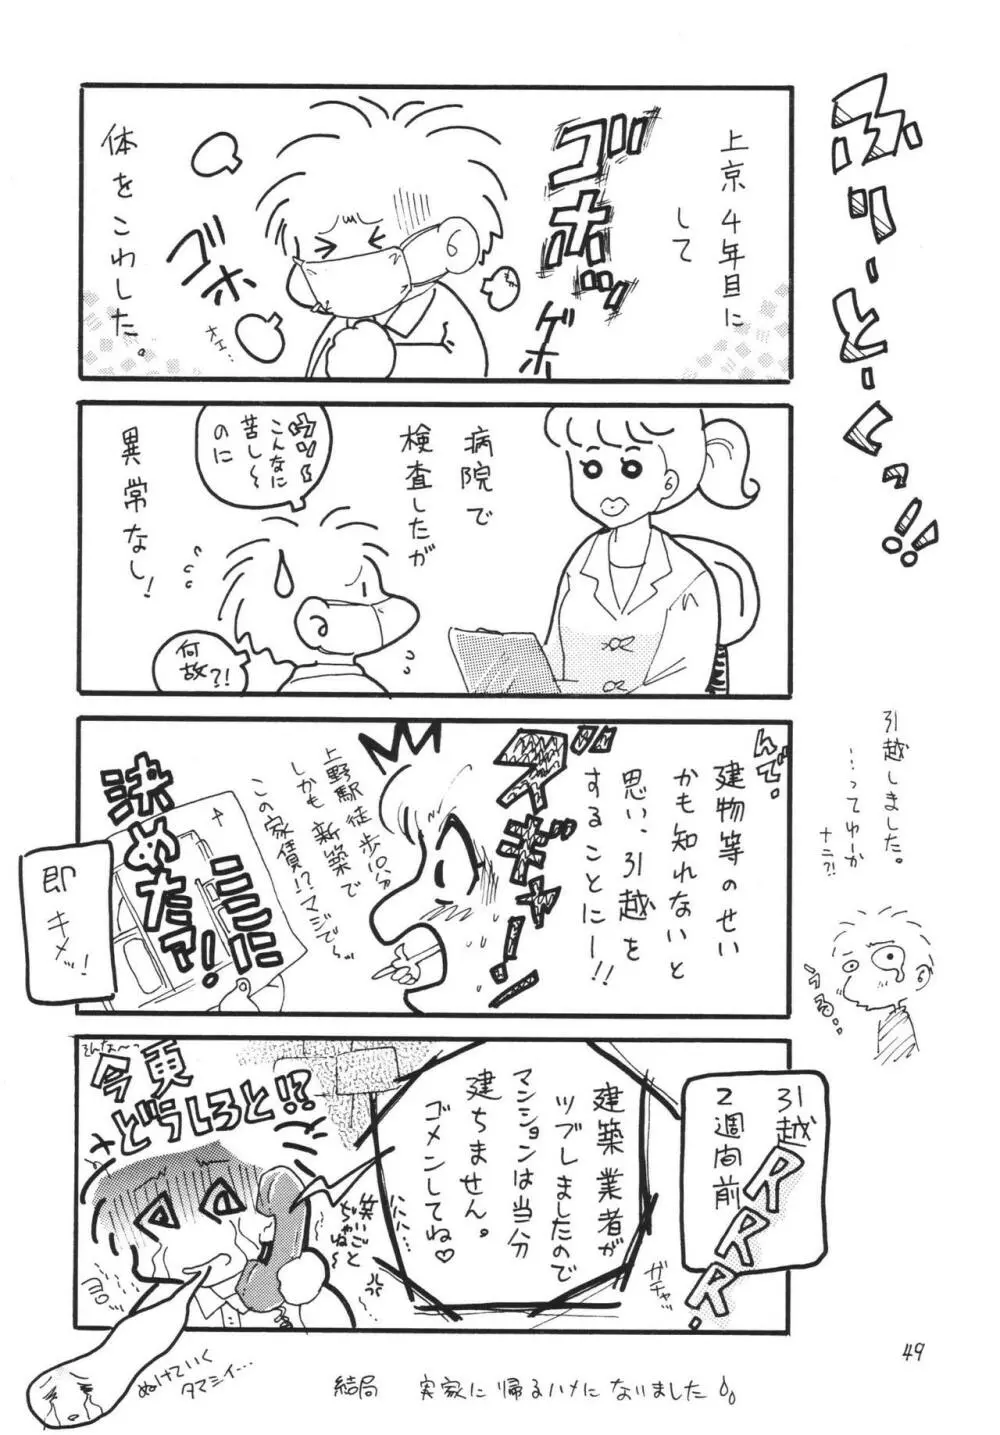 ふりーとーくっ!!
上京4年目に
して
ゴホッ
ゲホ
ゴホ
オエ…
体をこわした。
病院で
検査したが
異常なし!
ウソ〜
こんなに
苦し〜
のに
何故?!
んで。
建物等のせい
かも知れないと
思い、引越を
することにー!!
上野駅徒歩10分
しかも新築で
この家賃!?マジで〜
ここに
決めたァ!
即キメッ!
引越しました。
…ってゆーか
ナニ?!
うるる…
引越
2週間前
RRRR.
建築業者が
ツブレましたので
マンションは当分
建ちません。
ゴメンしてね♡
ハハハ…
ガチャッ
笑いごと
じゃねぇ〜
そんなーっ
今更
どうしろと!?
ぬけていく
タマシイ…
結局 実家に帰るハメになりました
49